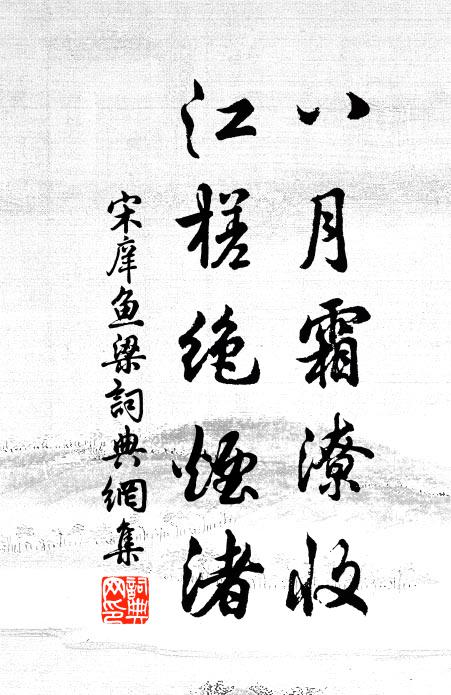 八月霜潦收
江槎绝煙渚
宋庠鱼梁詞典網集
詞典网印